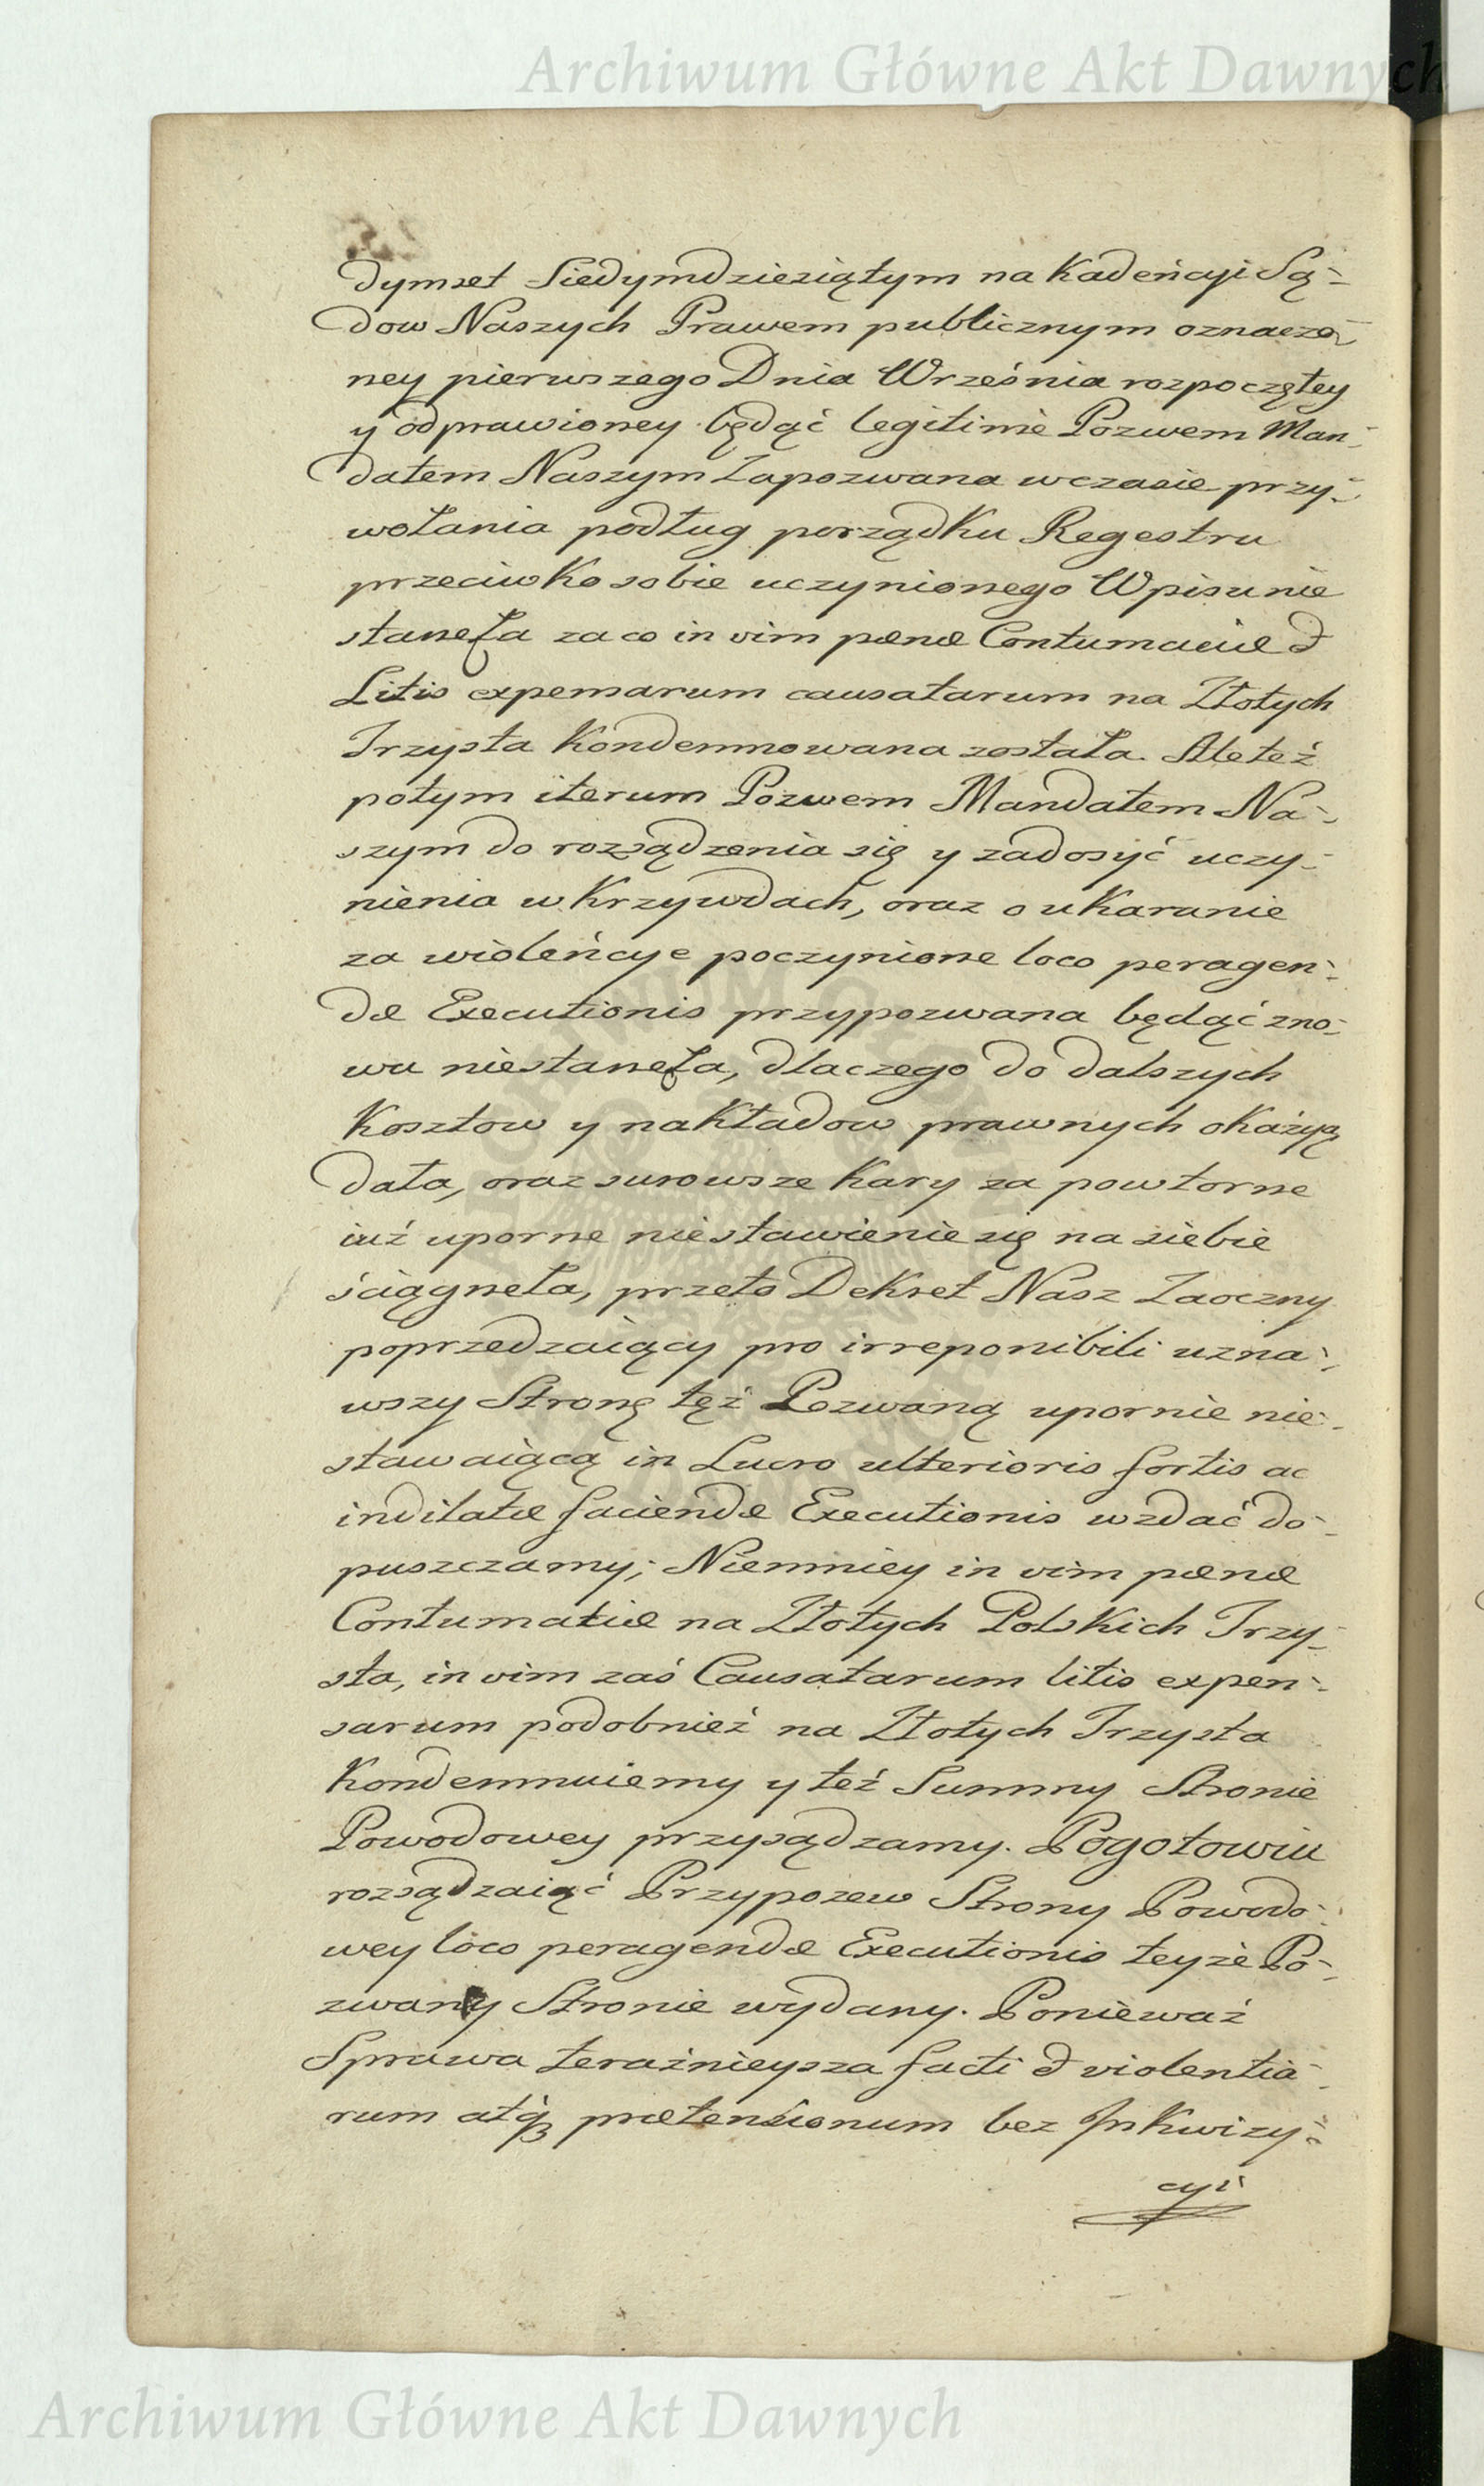 Archiwum Główne Akt Dawnych
dymset Siedymdziesiątym na Kadeńcyi Są-
dow Naszych Prawem publicznym oznaczo-
ney pierwszego Dnia Września rozpoczętey
y odprawioney będąć legitime Pozwem Man-
datem Naszym Zapozwana w czasie przy-
wołania podług porządku Regestru
przeciwko sobie uczynionego Wpisu nie
staneła za co in vim pænæ Contumaciæ et
Litis expensarum causatarum na Złotych
Trzysta Kondemnowana została. Ale też
potym iterum Pozwem Mandatem Na-
szym do rozsądzenia się y zadosyć uczy-
nienia w Krzywdach, oraz o ukaranie
za wioleńcye poczynione loco peragen-
dæ Executionis przypozwana będąć zno-
wu niestaneła, dlaczego do dalszych
Kosztow y nakładow prawnych okażyą
dała, oraz surowsze Kary za powtorne
iuż uporne niestawienie się na siebie
ściągneła, przeto Dekret Nasz Zaoczny
poprzedzaiący pro irreponibili uzna-
wszy Stronę tęż Pozwaną upornie nie-
stawaiącą in Lucro ulterioris fortis ac
indilatæ faciendæ Executionis wzdać do-
puszczamy; Niemniey in vim pænæ
Contumatiæ na Złotych Polskich Trzy-
sta, in vim zaś Causatarum litis expen-
sarum podobnież na Złotych Trzysta
Kondemnuiemy y też Summy Stronie
Powodowey przysądzamy. Pogotowiu
rozsądzaiąć Przypozew Strony Powodo-
wey loco peragendæ Executionis teyże Po-
zwany Stronie wydany. Ponieważ
Sprawa teraźnieysza facti et violentia-
rum atq prætensionum bez Inkwizy-
cyi
Archiwum Główne Akt Dawnych